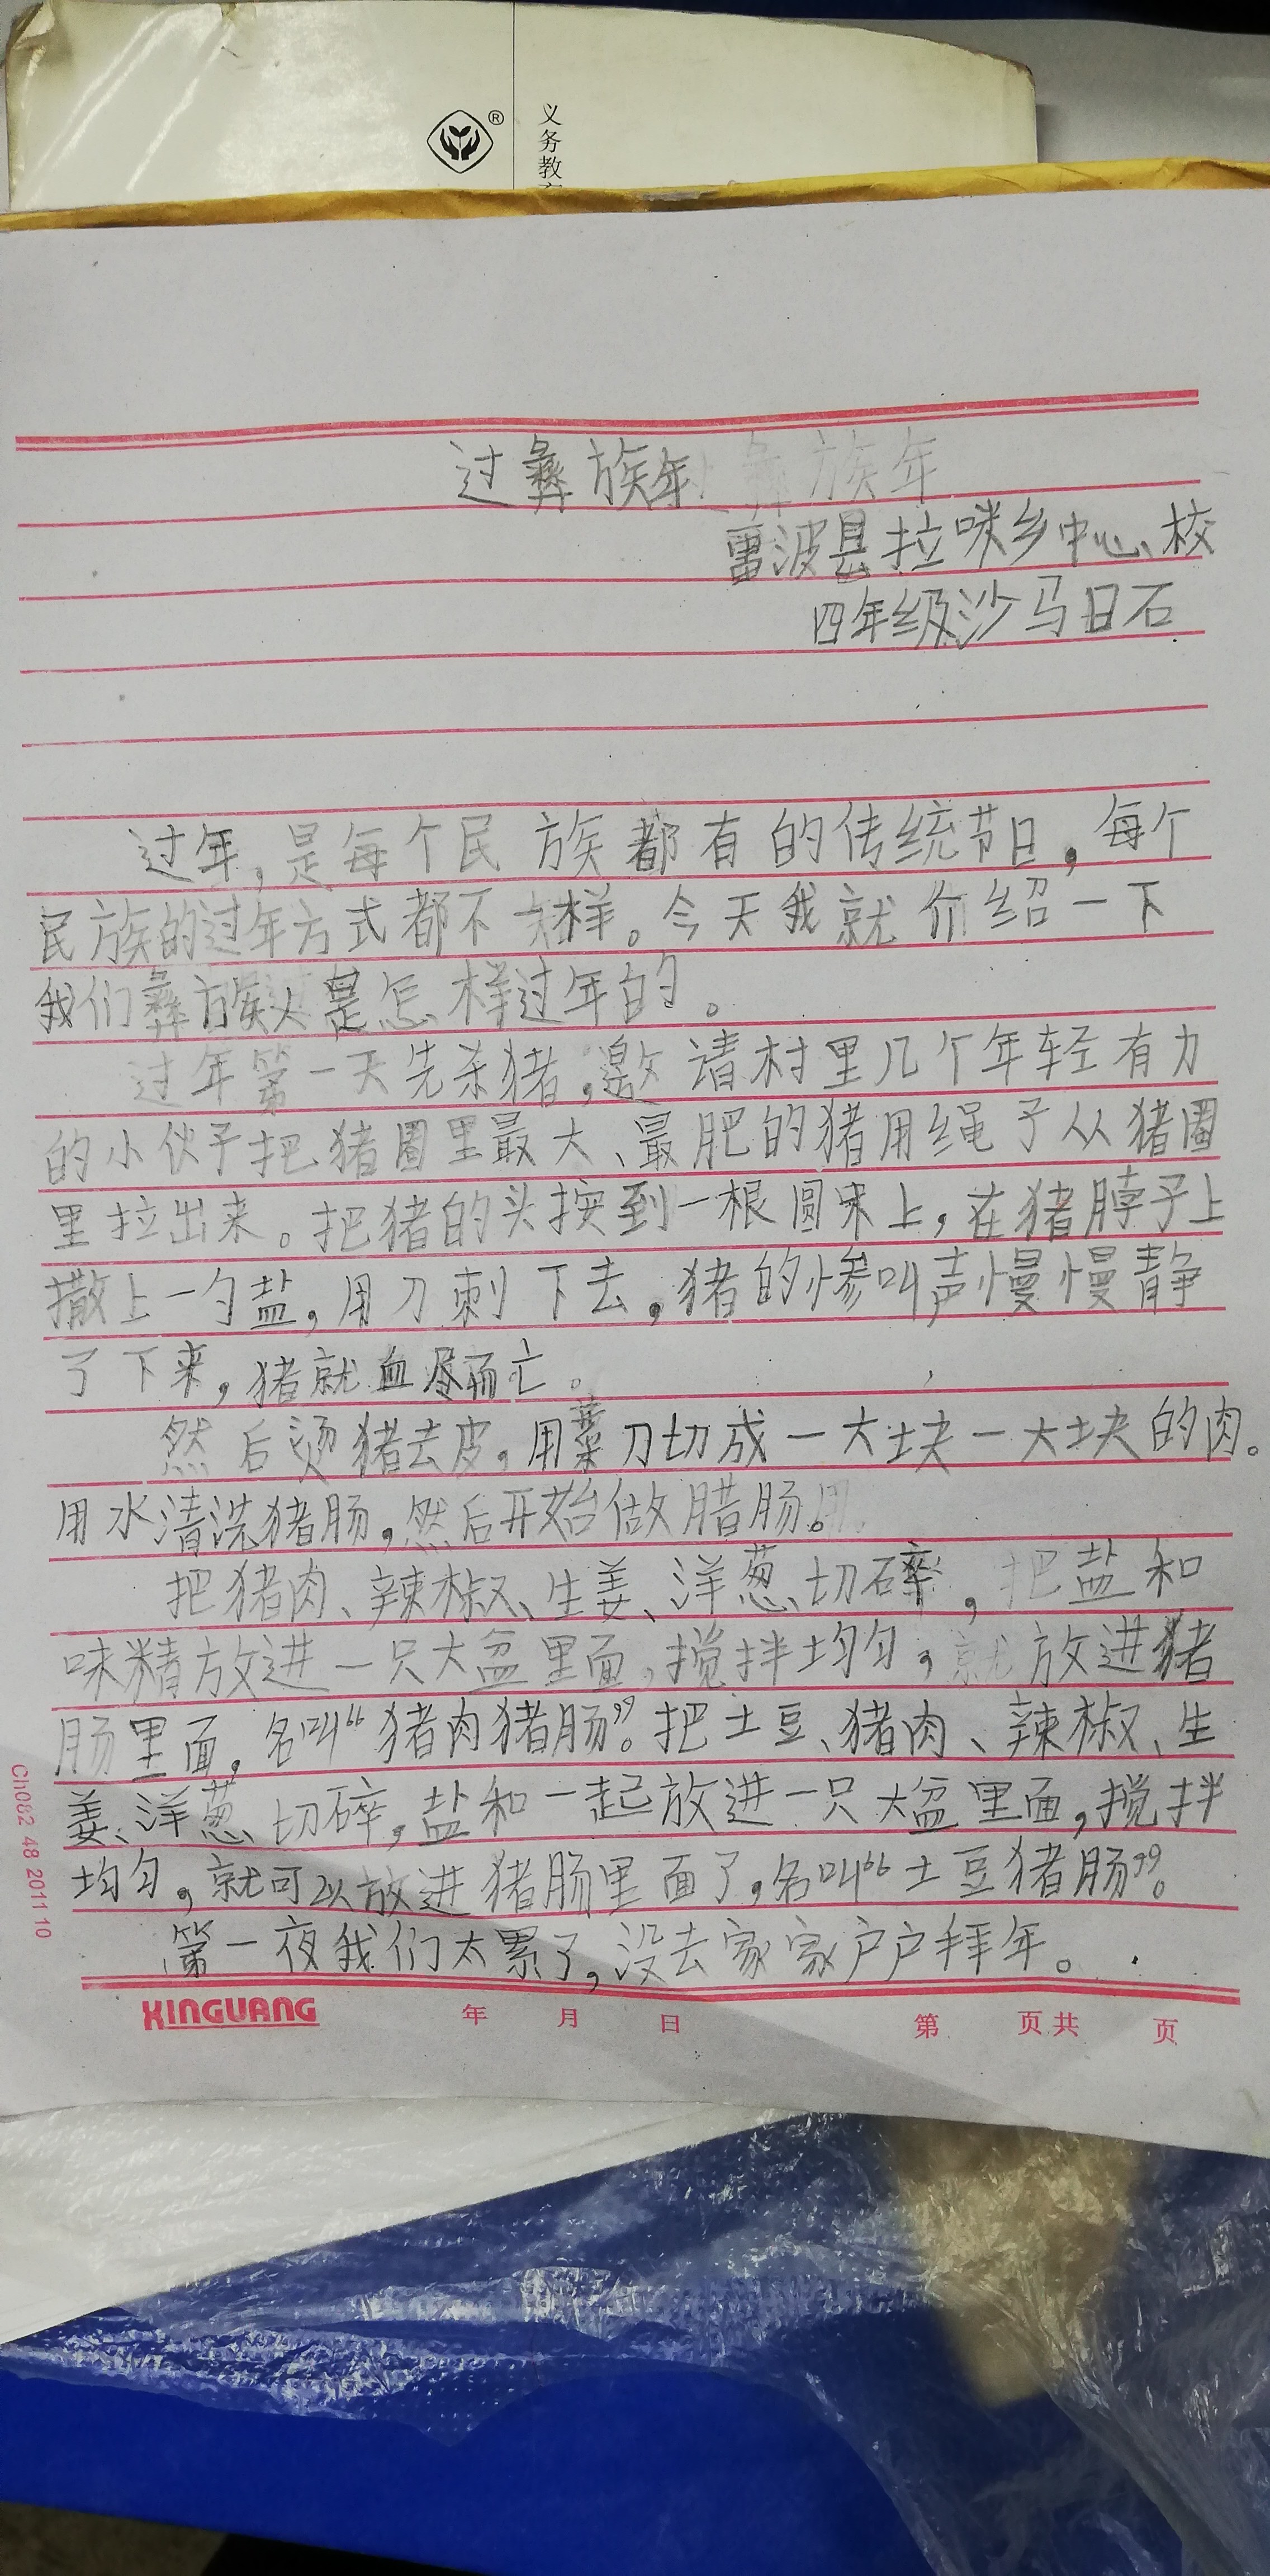 义务教
过彝族年
雷波县拉咪乡中心校
四年级沙马日石
过年,是每个民族都有的传统节日,每个
民族的过年方式都不一样。今天我就介绍一下
我们彝族人是怎样过年的。
过年第一天先杀猪,邀请村里几个年轻有力
的小伙子把猪圈里最大、最肥的猪用绳子从猪圈
里拉出来。把猪的头按到一根圆木上,在猪脖子上
撒上一勺盐,用刀刺下去,猪的惨叫声慢慢静
了下来,猪就血尽而亡。
然后烫猪去皮,用菜刀切成一大块一大块的肉。
用水清洗猪肠,然后开始做腊肠。
把猪肉、辣椒、生姜、洋葱切碎,把盐和
味精放进一只大盆里面,搅拌均匀,就放进猪
肠里面,名叫“猪肉猪肠”。把土豆、猪肉、辣椒、生
姜、洋葱切碎,盐和一起放进一只大盆里面,搅拌
均匀,就可以放进猪肠里面了,名叫“土豆猪肠”。
第一夜我们太累了,没去家家户户拜年。
XINGUANG 年 月 日 第 页共 页
Ch082 48 2011 10